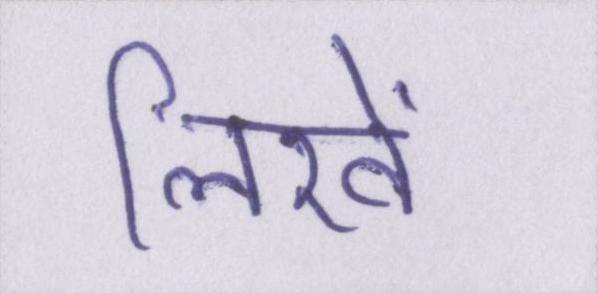 लिखें